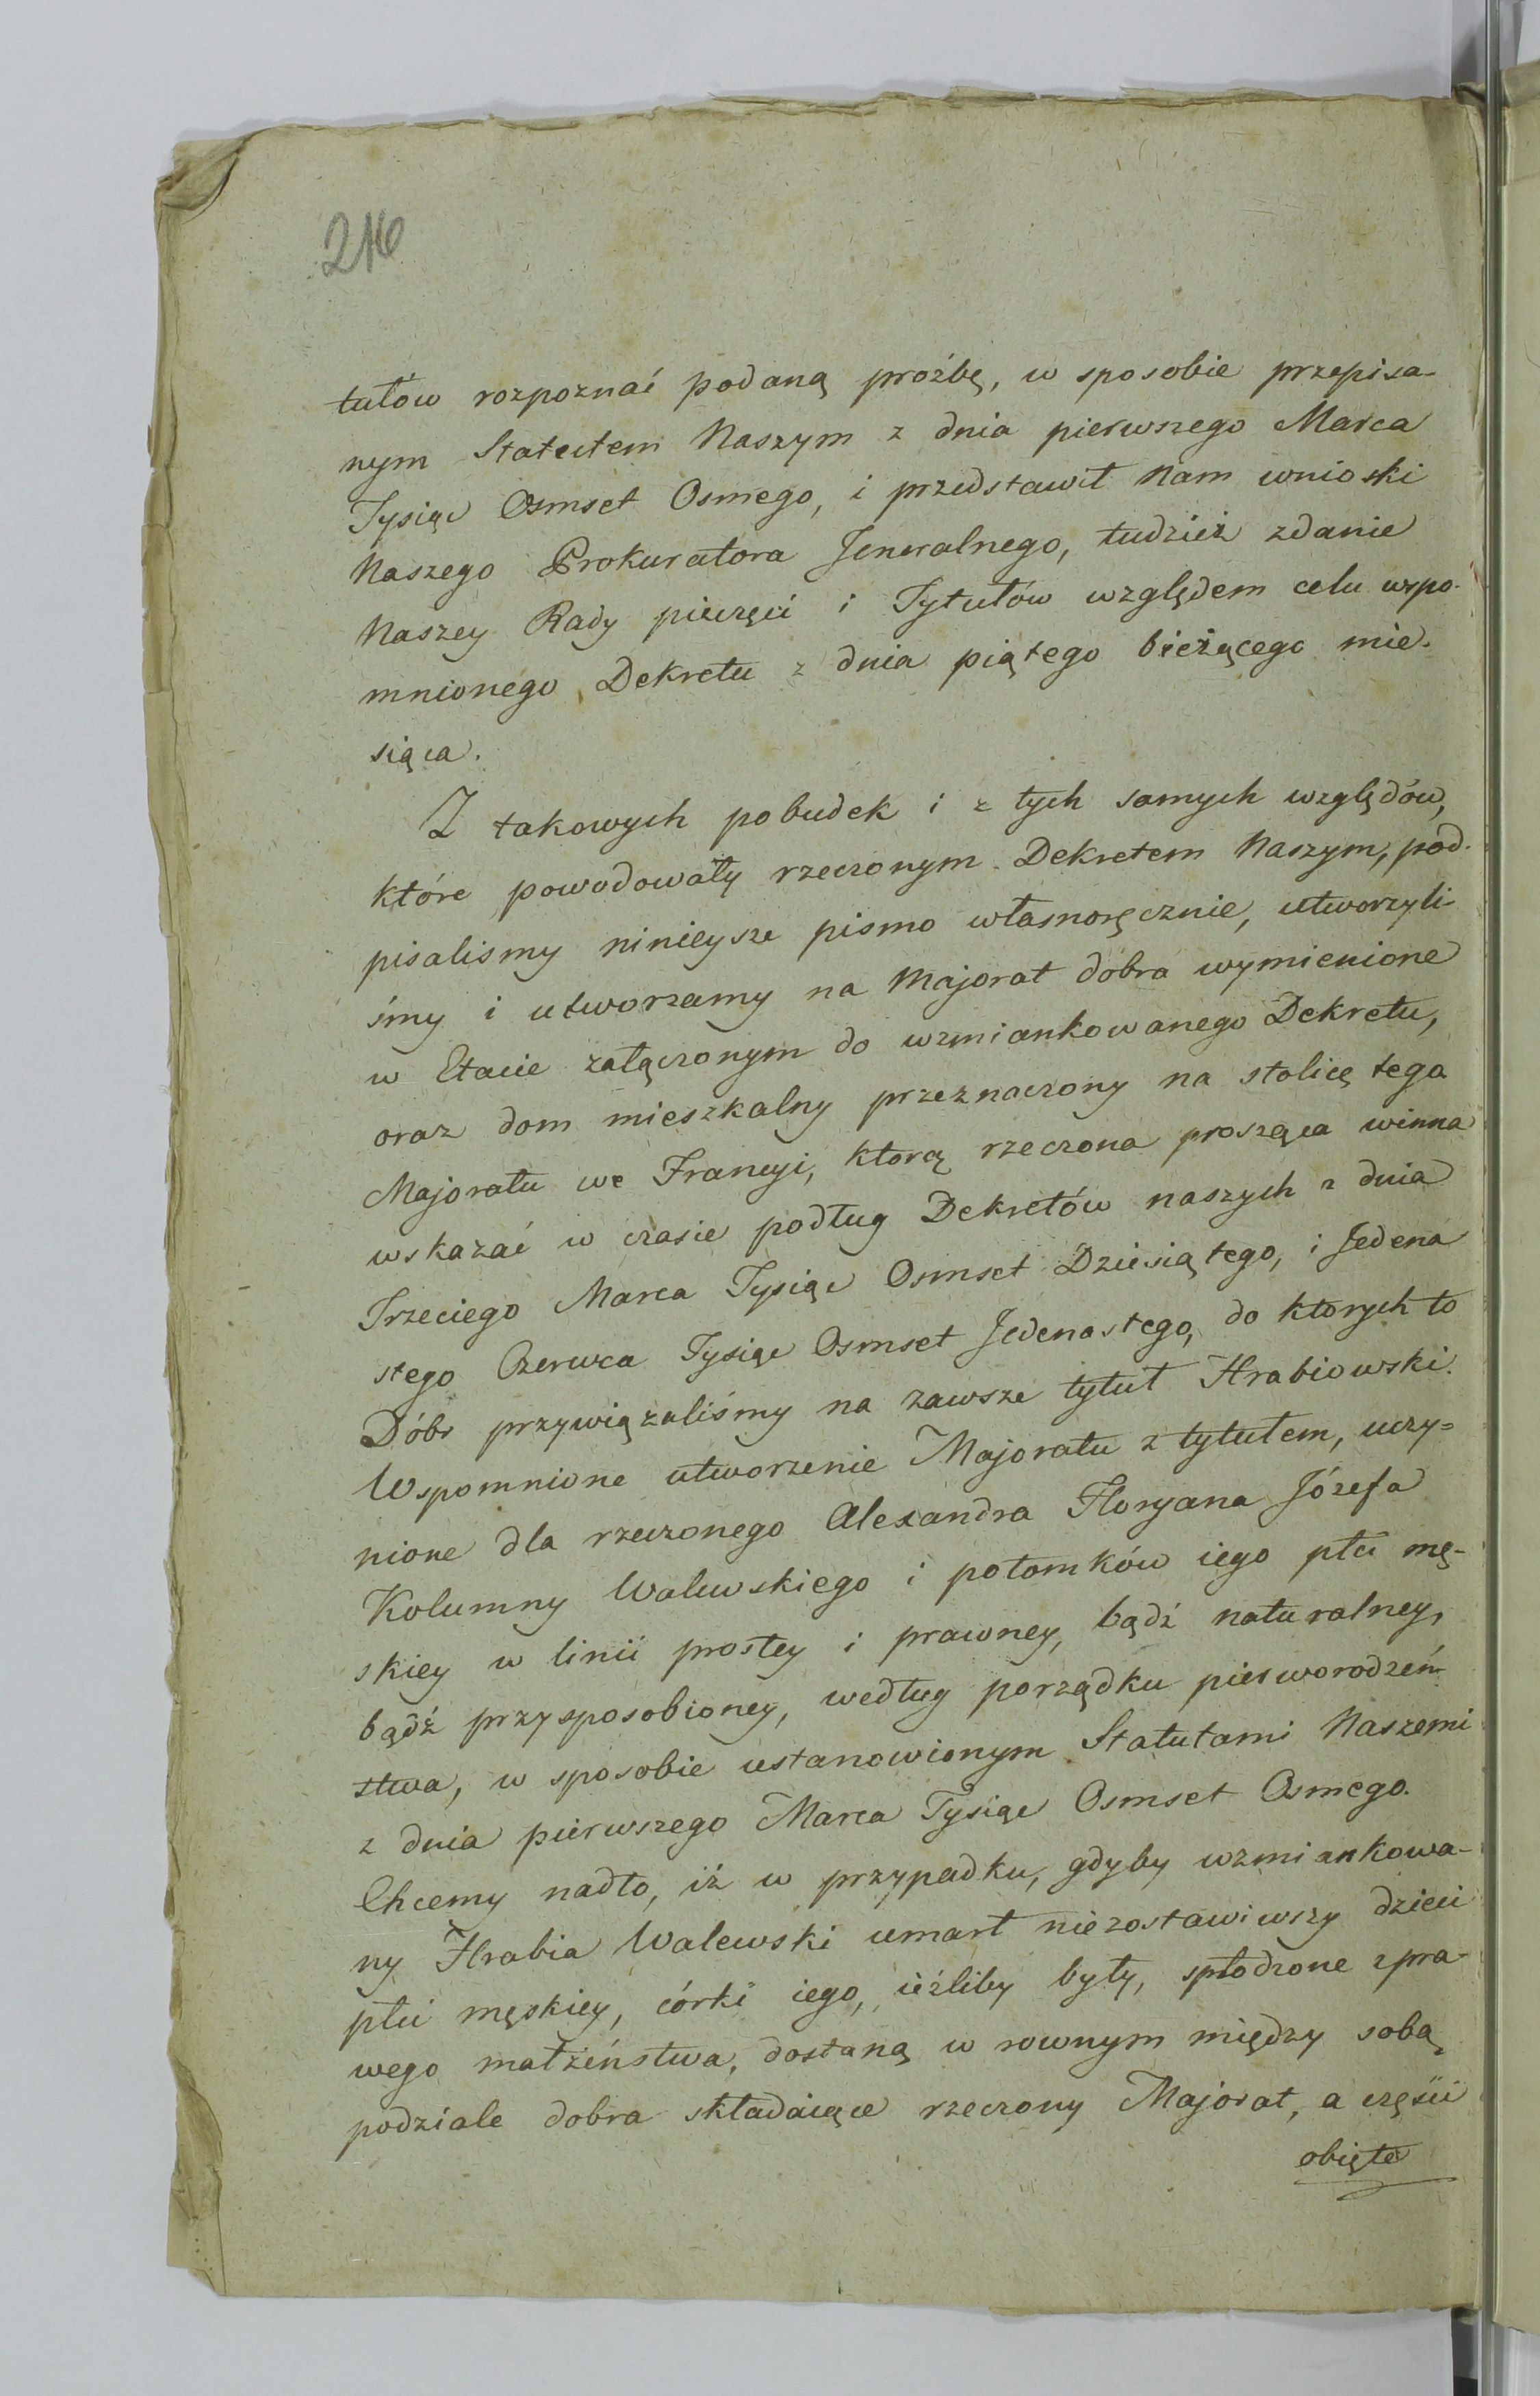 216
tułów rozpoznać podaną proźbę, w sposobie przepisa-
nym Statutem Naszym z dnia pierwszego Marca
Tysiąc Osmset Osmego, i przedstawił Nam wnioski
Naszego Prokuratora Jeneralnego, tudzież zdanie
Naszey Rady pieczęci i Tytułów względem celu wspo-
mnionego Dekretu z dnia piątego bieżącego mie-
siąca.
Z takowych pobudek i z tych samych względów,
które powodowały rzeczonym Dekretem Naszym, pod-
pisalismy ninieysze pismo własnoręcznie, utworzyli-
śmy i utworzamy na Majorat dobra wymienione
w Etacie załączonym do wzmiankowanego Dekretu,
oraz dom mieszkalny przeznaczony na stolicę tego
Majoratu we Francyi, ktorą rzeczona prosząca winna
wskazać w czasie podług Dekretów naszych z dnia
Trzeciego Marca Tysiąc Osmset Dziesiątego, i Jedena
stego Czerwca Tysiąc Osmset Jedenastego, do ktorych to
Dóbr przywiązaliśmy na zawsze tytuł Hrabiowski.
Wspomnione utworzenie Majoratu z tytułem, uczy=
nione dla rzeczonego Alexandra Floryana Józefa
Kolumny Walewskiego i potomków iego płci mę-
skiey w linii prostey i prawney, bądź naturalney,
bądź przysposobioney, według porządku pierworodzeń-
stwa, w sposobie ustanowionym Statutami Naszemi
z dnia pierwszego Marca Tysiąc Osmset Osmego.
Chcemy nadto, iż w przypadku, gdyby wzmiankowa-
ny Hrabia Walewski umarł niezostawiwszy dzieci
płci męskiey, córki iego, ieźliby były, spłodzone z pra-
wego małżeństwa, dostaną w rownym między sobą
podziale dobra składaiące rzeczony Majorat, a części
obięte